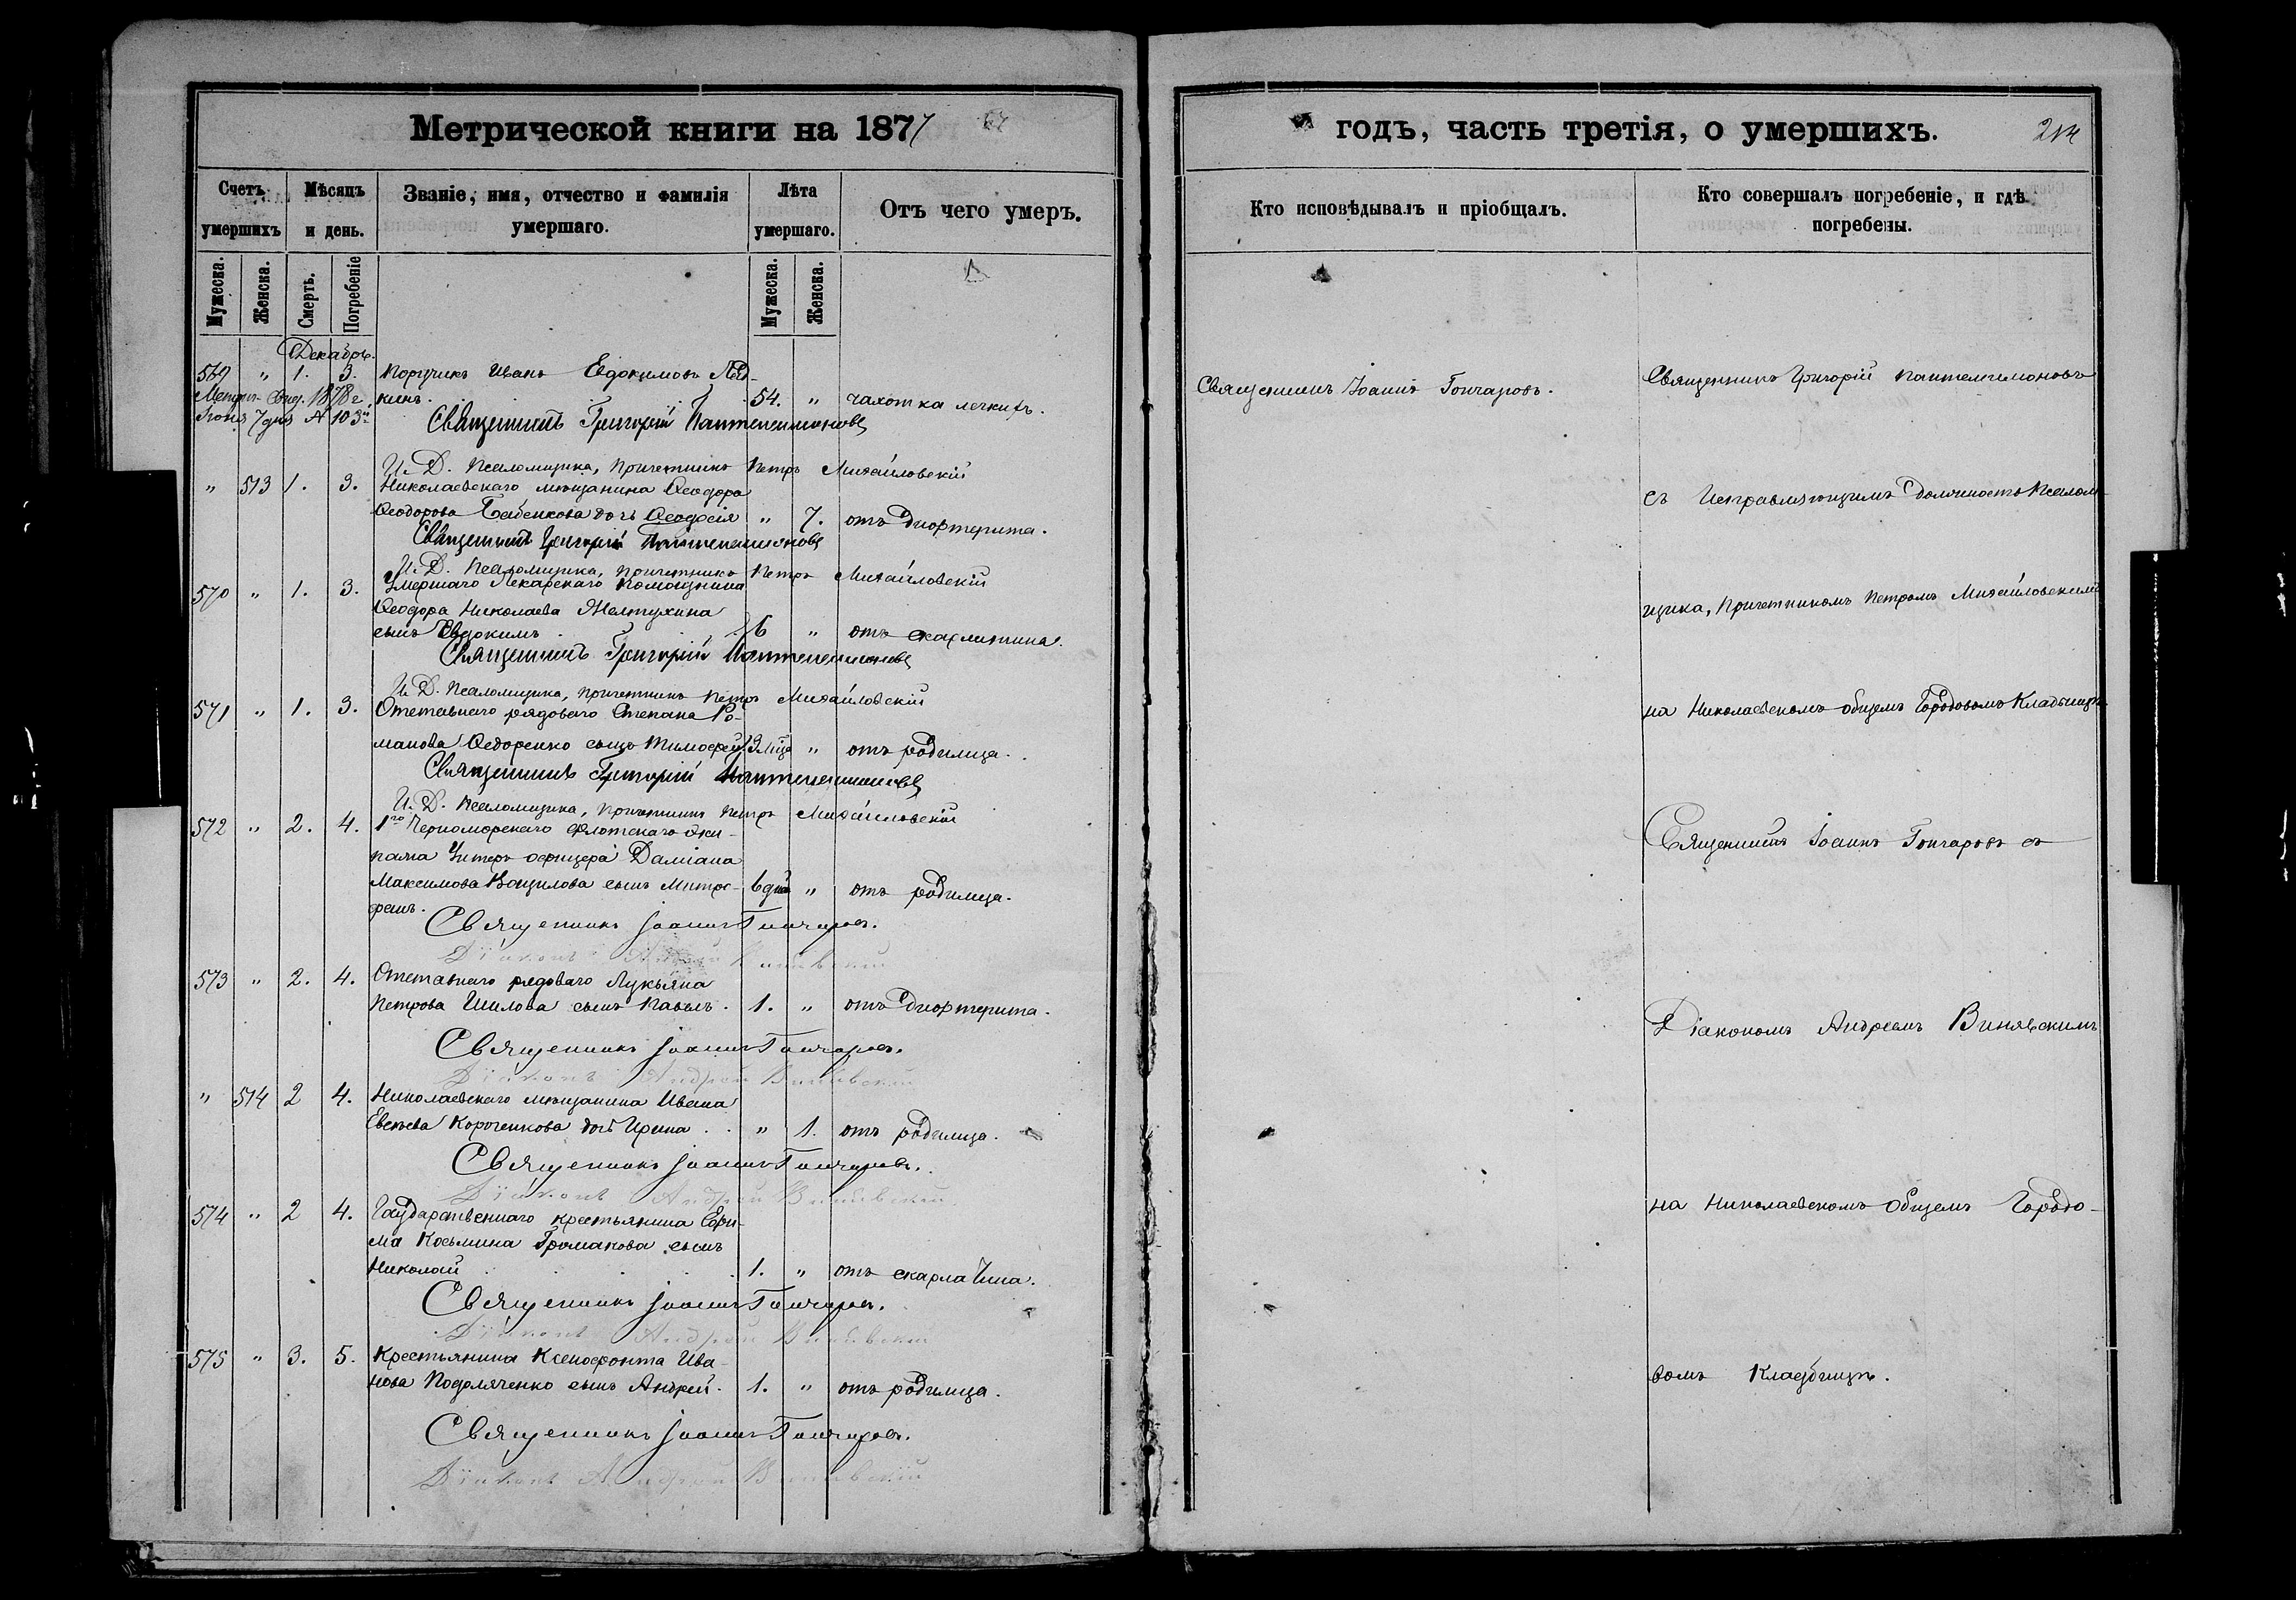 Метрической книги на 1877
годъ, часть третія, о умершихъ.
Счетъ умершихъ
Мѣсяцъ и день.
Званіе, имя, отчество и фамилія умершаго.
Лѣта умершаго.
Отъ чего умеръ.
Кто исповѣдывалъ и пріобщалъ.
Кто совершалъ погребеніе, и гдѣ погребены.
Мужеска.
Женска.
Смерть.
Погребеніе
Мужеска.
Женска.
Декабрь.
569 " 1. 3. Поручикъ Иванъ Евдокимовъ
кинъ. 54. " чахотка легкихъ.
1878 г.
7 дня № 103
Священникъ Григорій Пантелеимоновъ
И. Д. Псаломщика, Причетникъ Петръ Михайловскій
" 513 1. 3. Николаевскаго мѣщанина Ѳеодора
Ѳеодорова Бабенкова дочь Ѳеодосія " 7. отъ дифтерита.
Священникъ Григорій Пантелеимоновъ
И. Д. Псаломщика, Причетникъ Петръ Михайловскій
570 " 1. 3. Умершаго Лекарскаго Помощника
Ѳеодора Николаева Желтухина
сынъ Евдокимъ 6 " отъ скарлатина.
Священникъ Григорій Пантелеимоновъ
И. Д. Псаломщика, Причетникъ Петръ Михайловскій
571 " 1. 3. Отставнаго рядоваго Степана Ро-
манова Ѳедоренко сынъ Тимофей 3 мѣс. " отъ родимца.
Священникъ Григорій Пантелеимоновъ
И. Д. Псаломщика, Причетникъ Петръ Михайловскій
572 " 2. 4. 1го Черноморскаго флотскаго эки-
пажа Унтеръ офицера Даміана
Максимова сынъ Митро- 6 дней " отъ родимца.
фанъ.
Священникъ Іоаннъ Гончаровъ.
Діаконъ Андрей Винявскій
573 " 2. 4. Отставнаго рядоваго Лукьяна
Петрова Шилова сынъ Павелъ. 1. " отъ дифтерита.
Священникъ Іоаннъ Гончаровъ.
Діаконъ Андрей Винявскій
" 514 2 4. Николаевскаго мѣщанина Ивана
Евсѣева Короченкова дочь Ирина " 1. отъ родимца.
Священникъ Іоаннъ Гончаровъ.
Діаконъ Андрей Винявскій
574 " 2 4. Государственнаго крестьянина Ефи-
ма Косьмина Громакова сынъ
Николай 1. " отъ скарлатина.
Священникъ Іоаннъ Гончаровъ.
Діаконъ Андрей Винявскій
575 " 3. 5. Крестьянина Ксенофонта Ива-
нова Подоляченко сынъ Андрей. 1. " отъ родимца.
Священникъ Іоаннъ Гончаровъ.
Діаконъ Андрей Винявскій
Священникъ Іоаннъ Гончаровъ.
Священникъ Григорій Пантелеимоновъ
съ Исправляющимъ должность Псалом-
щика, Причетникомъ Петромъ Михайловскимъ
на Николаевскомъ общемъ Городовомъ Кладбищѣ
Священникъ Іоаннъ Гончаровъ съ
Діакономъ Андреемъ Винявскимъ
на Николаевскомъ общемъ Городо-
вомъ Кладбищѣ.